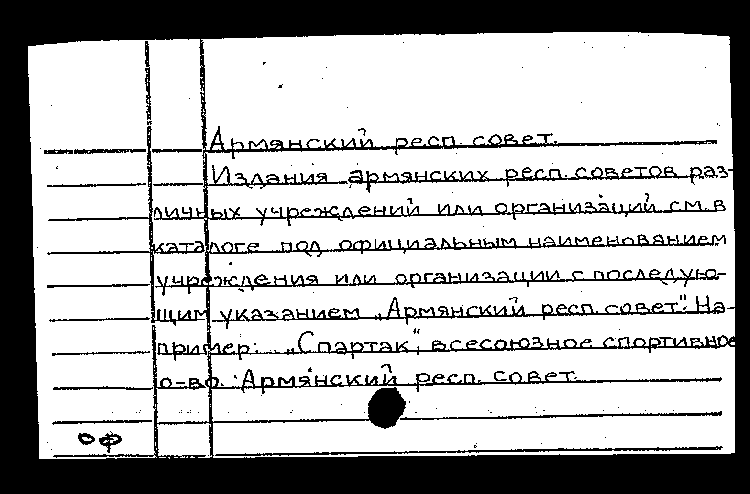 Армянский респ. совет.
Издания армянских респ. советов раз-
личных учреждений или организаций см. в
каталоге под официальным наименованием
учреждения или организации с последую-
щим указанием „Армянский респ. совет". На-
пример: „Спартак", всесоюзное спортивное
о-во. Армянский респ. совет.
оф